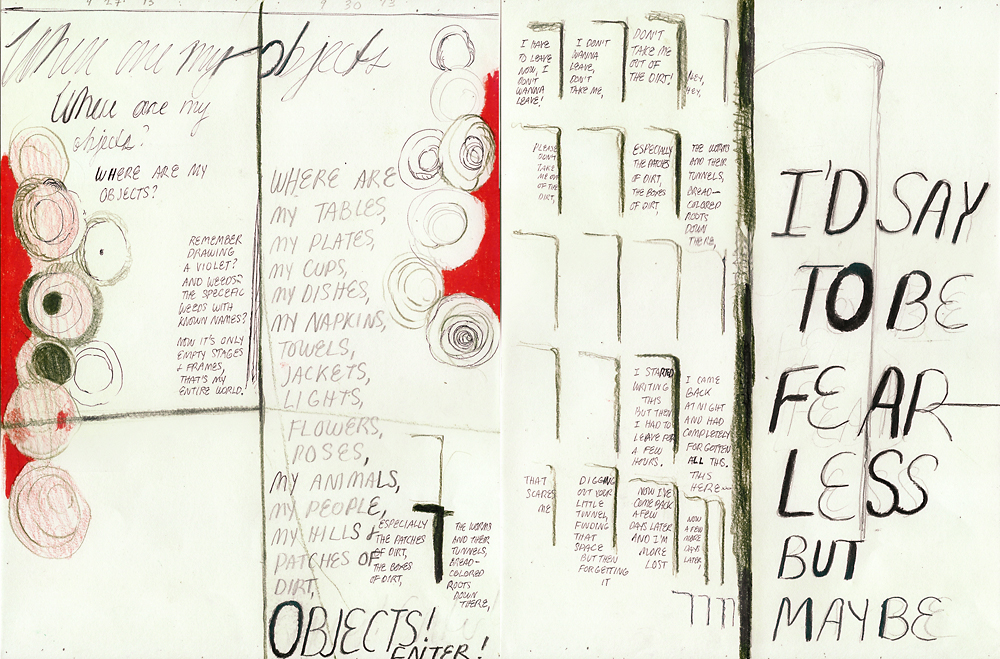 9 27 13
9 30 13
Where are my objects
Where are my
objects?
WHERE ARE MY
OBJECTS?
REMEMBER
DRAWING
A VIOLET?
AND WEEDS-
THE SPECEFIC
WEEDS WITH
KNOWN NAMES?
NOW IT'S ONLY
EMPTY STAGES
+ FRAMES,
THAT'S MY
ENTIRE WORLD.
WHERE ARE
MY TABLES,
MY PLATES,
MY CUPS,
MY DISHES,
MY NAPKINS,
TOWELS,
JACKETS,
LIGHTS,
FLOWERS,
POSES,
MY ANIMALS,
MY PEOPLE,
MY HILLS +
PATCHES OF
DIRT,
OBJECTS!
ENTER!
ESPECIALLY
THE PATCHES
OF DIRT,
THE BOXES
OF DIRT,
THE WORMS
AND THEIR
TUNNELS,
BREAD-
COLORED
ROOTS
DOWN
THERE,
I HAVE
TO LEAVE
NOW, I
DON'T
WANNA
LEAVE!
I DON'T
WANNA
LEAVE,
DON'T
TAKE ME,
DON'T
TAKE ME
OUT OF
THE DIRT!
HEY,
HEY,
PLEASE
DON'T
TAKE
ME OUT
OF THE
DIRT,
ESPECIALLY
THE PATCHES
OF DIRT,
THE BOXES
OF DIRT,
THE WORMS
AND THEIR
TUNNELS,
BREAD-
COLORED
ROOTS
DOWN
THERE,
I STARTED
WRITING
THIS
BUT THEN
I HAD TO
LEAVE FOR
A FEW
HOURS.
I CAME
BACK
AT NIGHT
AND HAD
COMPLETELY
FORGOTTEN
ALL THIS.
THIS
HERE-
THAT
SCARES
ME
DIGGING
OUT YOUR
LITTLE
TUNNEL,
FINDING
THAT
SPACE
BUT THEN
FORGETTING
IT
NOW I'VE
COME BACK
A FEW
DAYS LATER
AND I'M
MORE
LOST
NOW
A FEW
MORE
DAYS
LATER,
I'D SAY
TO BE
FEAR
LESS
BUT
MAYBE